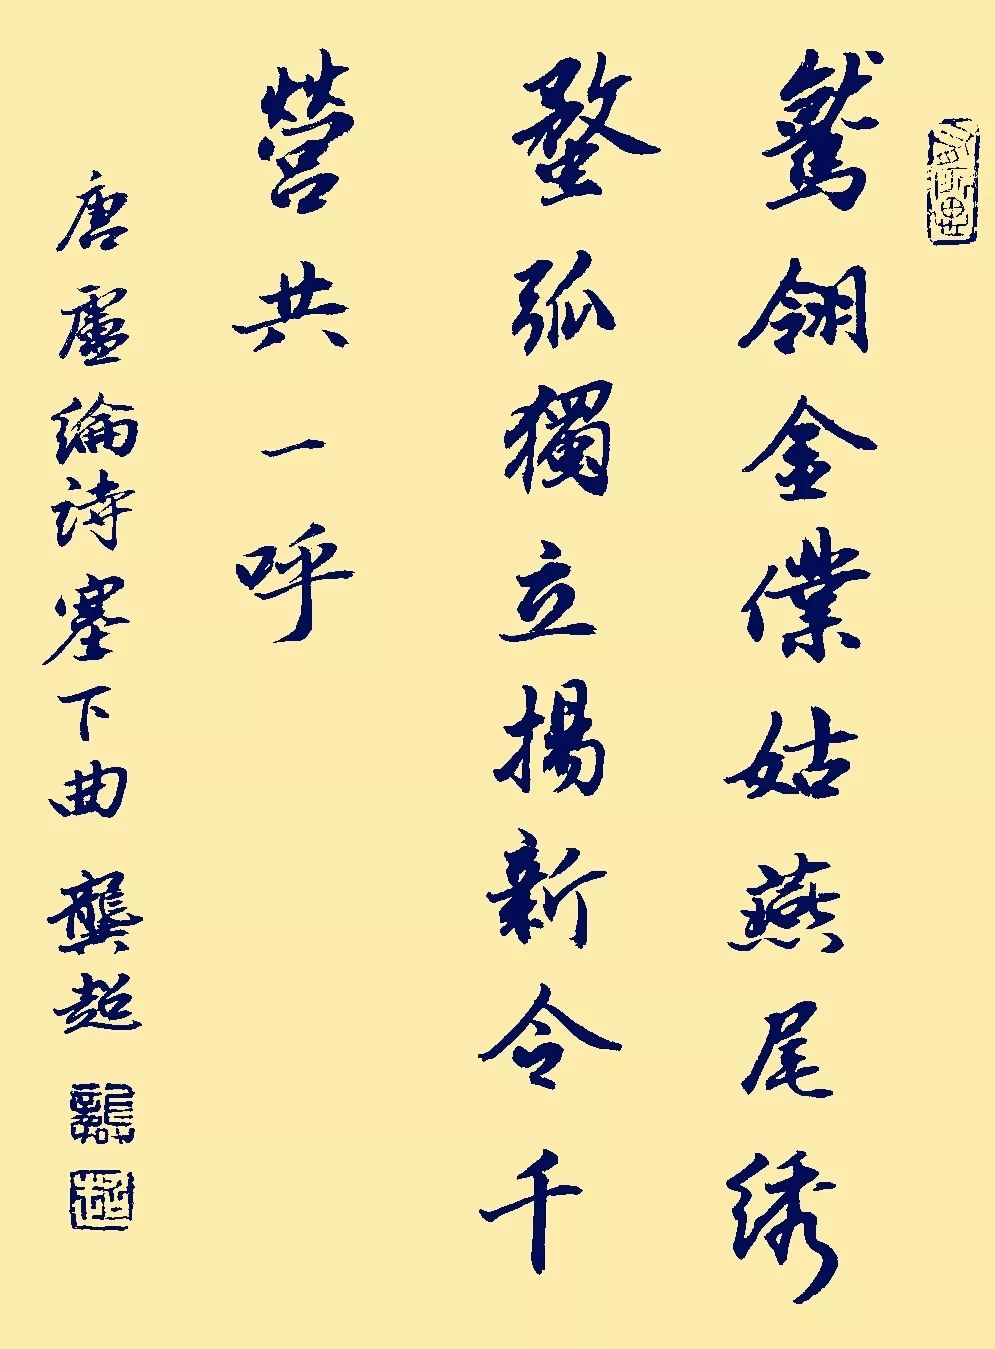 鷲翎金僕姑燕尾绣
蝥弧獨立揚新令千
營共一呼
唐盧綸詩塞下曲 龔超
龔
超